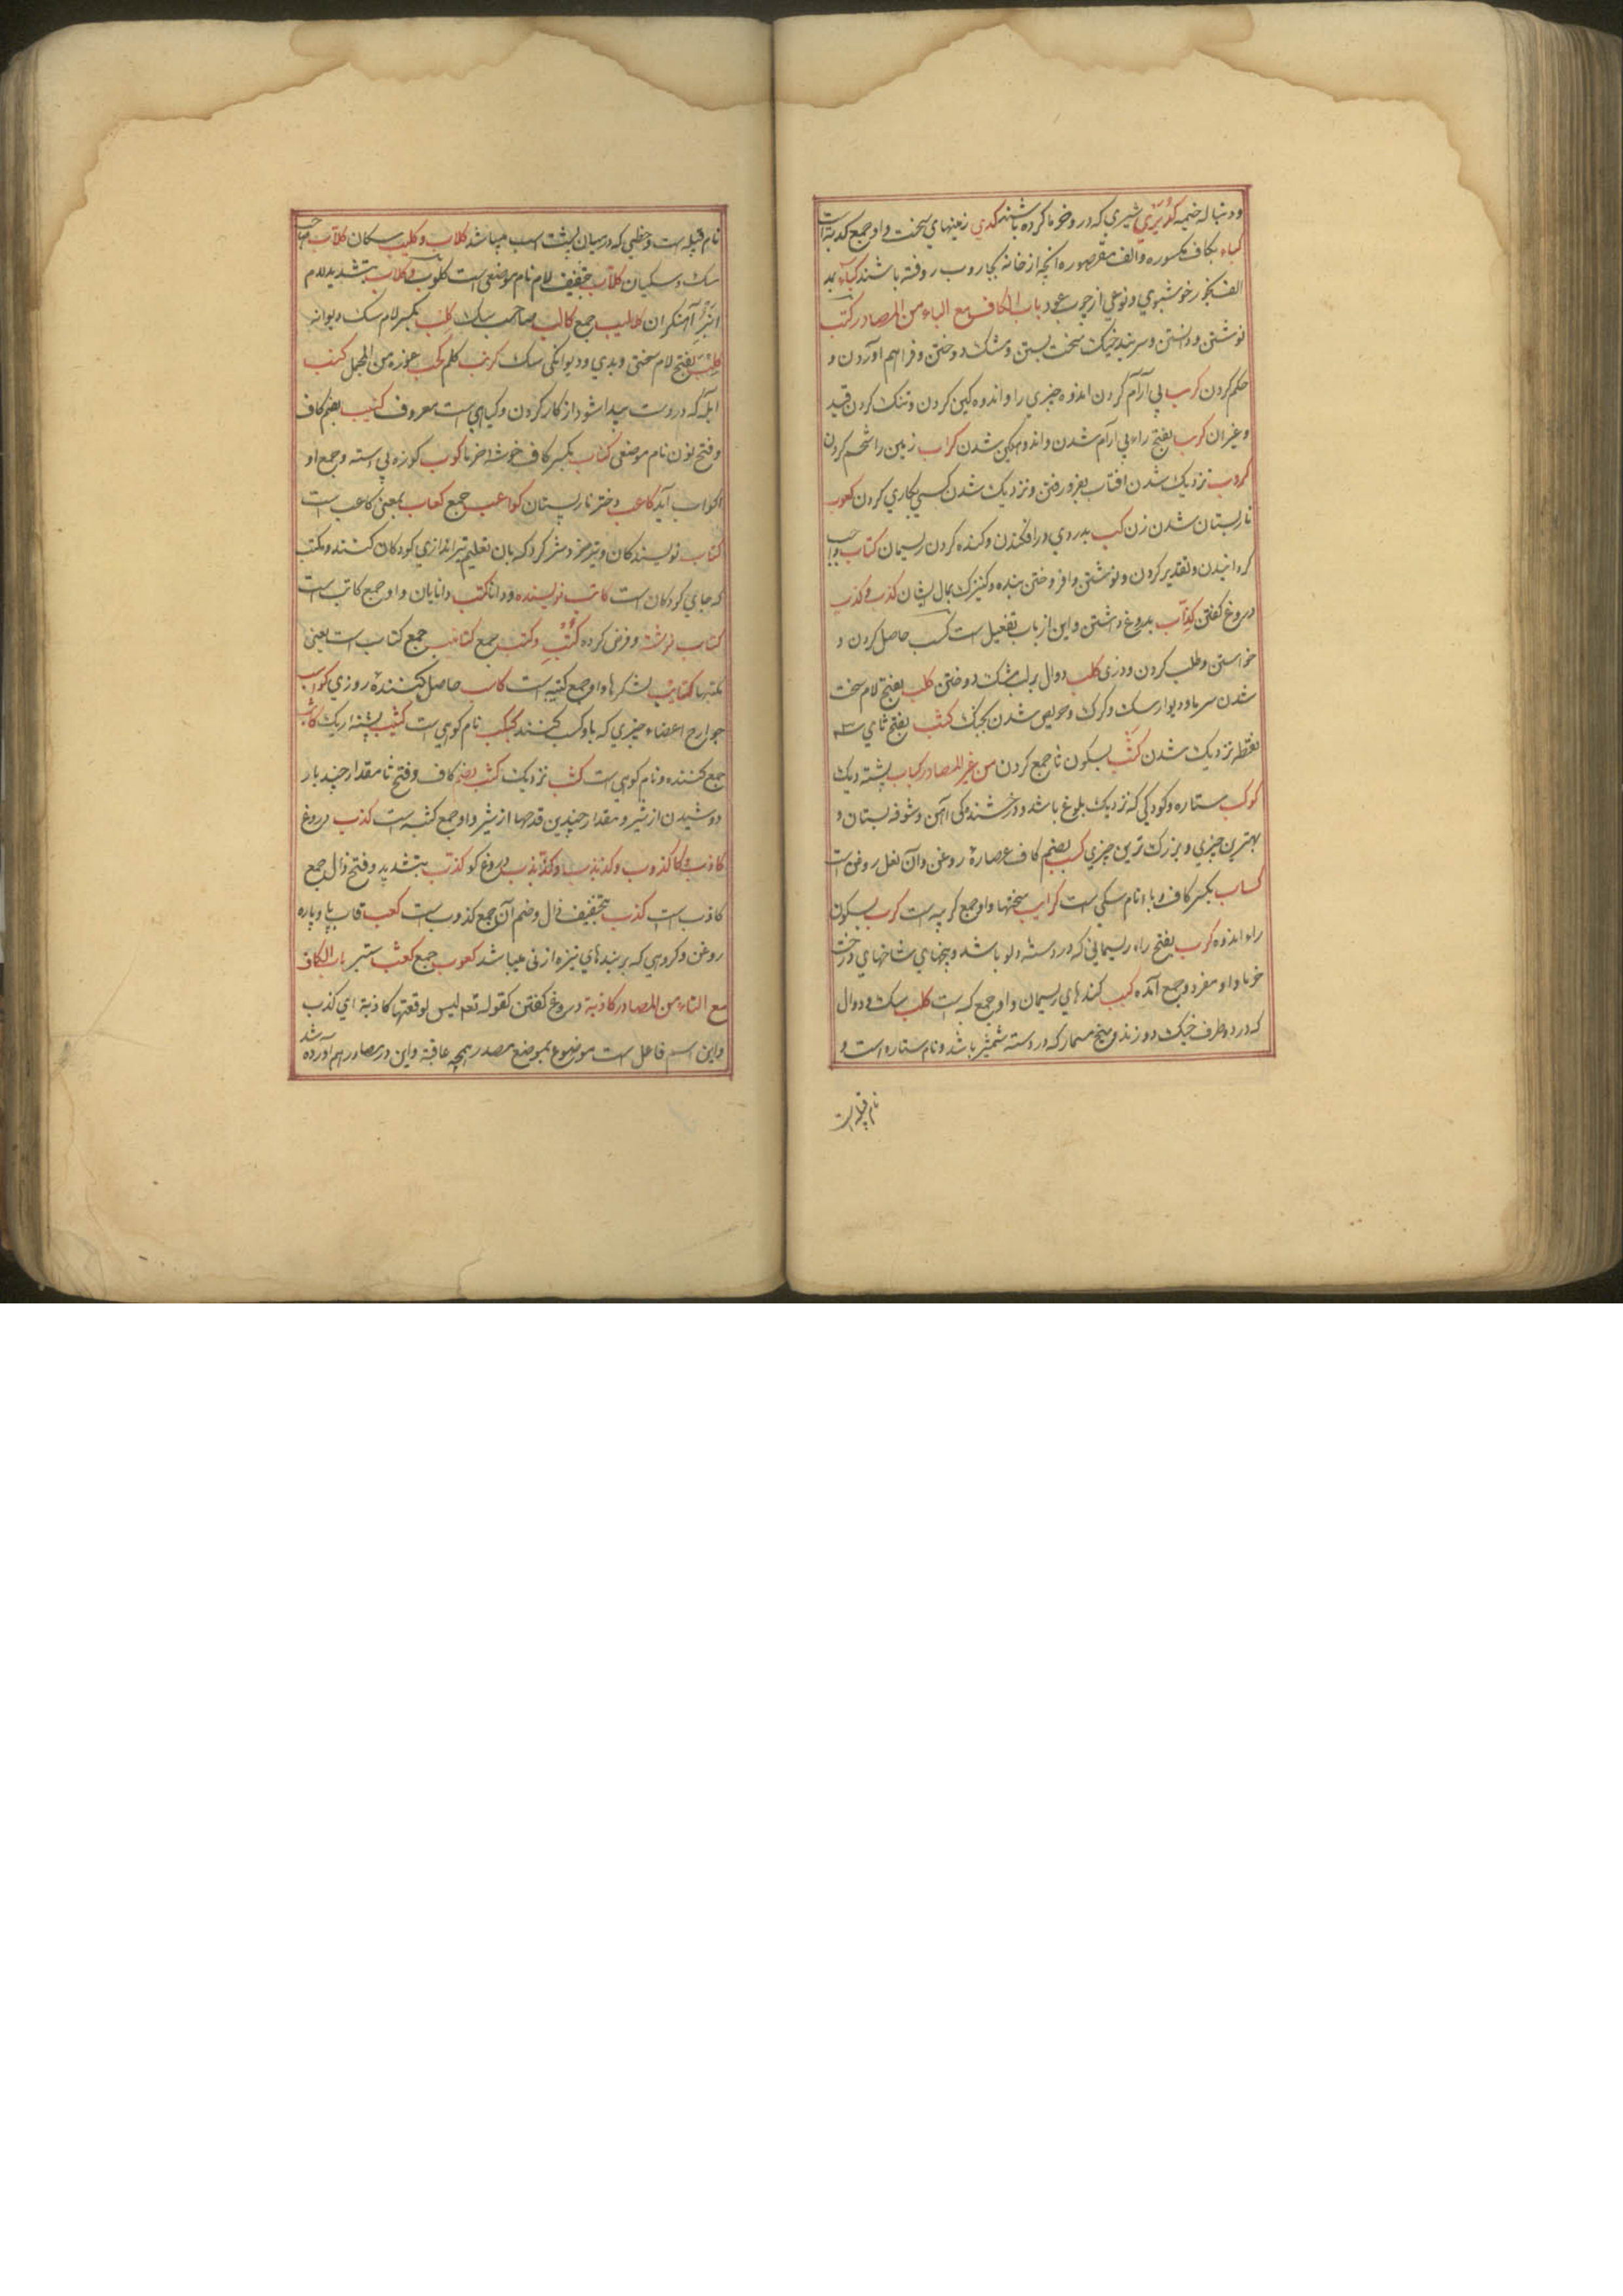 ودنباله خیمه کدیری شیری که درو خرما کرده باشند کدي زمینهاي سخت واو جمع کدیة است
کباه بکاف مکسوره والف مقصوره انچه از خانه بجاروب روفته باشند کباء بمد
الف بخور خوشبوي ونوعی از چوب عود باب الکاف مع الباء من المصادر کتب
نوشتن ودانستن وسربند خیک سخت بستن ومشک دوختن وفراهم آوردن و
حکم کردن کرب بی آرام کردن اندوه چیزی را واندوهکین کردن وتنک کردن قید
وغیران کرب بفتح راء بی آرام شدن واندوهکین شدن کراب زمین را شخم کردن
کروب نزدیک شدن افتاب بفرو رفتن ونزدیک شدن کسی بکاري کردن کعوب
نارپستان شدن زن کب بروي درافکندن وکنده کردن ریسمان کتاب واجب
کردانیدن وتقدیر کردن ونوشتن وافروختن بنده وکنیزک بمال ایشان کذب وکذب
دروغ کفتن کذاب بدروغ داشتن واین از باب تفعیل است کسب حاصل کردن و
خواستن وطلب کردن ودزی کلب دوال برلب مشک دوختن کلب بفتح لام سخت
شدن سرما ودیوار سک وکرک وحریص شدن بجنک کثب بفتح ثاي سه
نقطه نزدیک شدن کثب بسکون ثا جمع کردن من غیر المصادر کباب پشته ریک
کوکب ستاره وکودکی که نزدیک بلوغ باشد ودرخشندکی آهن وشکوفه بستان و
بهترین چیزي وبزرک ترین چیزي کسب بضم کاف عصارهٔ روغن وآن ثفل روغن است
کساب بکسر کاف وبا نام سکی است کرایب سختیها واو جمع کریبه است کرب بسکون
راء اندوه کرب بفتح راء ریسمانی که در دسته دلو باشد وبیخهاي شاخهاي درخت
خرما واو مفرد وجمع آمده کبب کندهاي ریسمان واو جمع کبه است کلب سک ودوال
که در دو طرف خیک دوزند ومیخ مسمار که در دسته شمشیر باشد ونام ستاره است و
نام قبیله است
نام قبیله است وخطی که درمیان پشت اسب میباشد کلاب وکلیب سکان کلاب صاحب
سک وسکبان کلاب بتخفیف لام نام موضعی است کلوب وکلاب بتشدید لام
انبر آهنکران کلالیب جمع کالب صاحب سک کلب بکسر لام سک دیوانه
کلب بفتح لام سختی وبدي ودیوانکی سک کرنب کلم کحب غوره من المجمل کنب
آبله که در دست پیدا شود از کار کردن وکیاهی است معروف کنیب بضم کاف
وفتح نون نام موضعی کناب بکسر کاف خوشه خرما کوب کوزه بی دسته وجمع او
اکواب آید کاعب دختر نارپستان کواعب جمع کعاب بمعنی کاعب است
کتاب نویسندکان وتیر خرد سر کرد که بان تعلیم تیراندازي کودکان کنند ومکتب
که جاي کودکان است کاتب نویسنده ودانا کتب دانایان واو جمع کاتب است
کتاب نوشته وفرض کرده کتب وکتب جمع کتایب جمع کتاب است یعنی
مکتبها کتایب لشکرها واو جمع کتیبه است کاسب حاصل کنندهٔ روزي کواسب
جوارح اعضاء چیزي که باو کسب کنند کبکب نام کوهی است کثیب پشته اریک کاثب
جمع کننده ونام کوهی است کثب نزدیک کثب بضم کاف وفتح ثا مقدار چند بار
دوشیدن از شیر ومقدار چندین قدحها از شیر واو جمع کثبه است کذب دروغ
کاذب وکذوب وکذبذب وکذبذب دروغ کو کذب بتشدید وفتح ذال جمع
کاذب است کذب بتخفیف ذال وضم آن جمع کذوب است کعب قاب پا وپاره
روغن وکروهی که بربندهاي نیزه از نی میباشد کعوب جمع کعثب استبر باب الکاف
مع التاء من المصادر کاذبة دروغ کفتن کقوله تعه لیس لوقعتها کاذبة اي کذب
واین اسم فاعل است موضوع بموضع مصدر همچه عاقبة واین در مصادر هم آورده شد